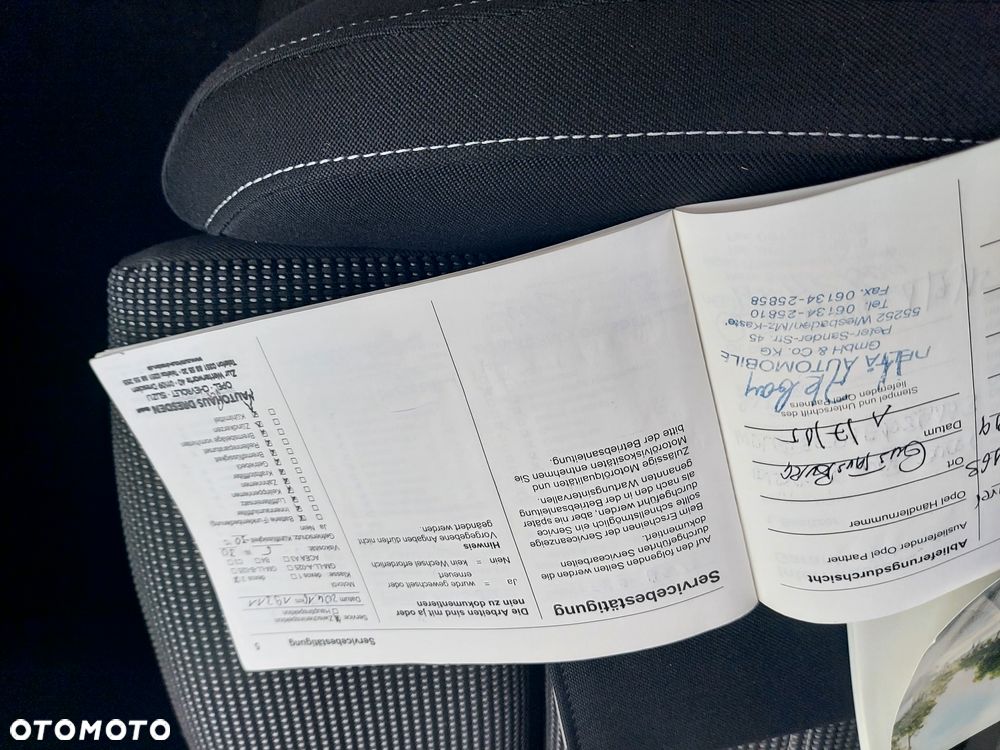 Ablieferungsdurchsicht
Ausliefernder Opel Partner
Opel Händlernummer
Ort
Gustavsburg
Datum
Stempel und Unterschrift des
liefernden Opel Partners
AUTOMOBILE
GmbH & Co. KG
Peter-Sander-Str. 45
55252 Wiesbaden/Mz-Kastel
Tel. 06134-25810
Fax. 06134-25858
Servicebestätigung
Auf den folgenden Seiten werden die
durchgeführten Servicearbeiten
dokumentiert.
Beim Erscheinen der Serviceanzeige
sollte schnellstmöglich ein Service
durchgeführt werden, aber nie später
als nach den in der Betriebsanleitung
genannten Wartungsintervallen.
Zulässige Motorölqualitäten und
Motorölviskositäten entnehmen Sie
bitte der Betriebsanleitung.
Die Arbeiten sind mit ja oder
nein zu dokumentieren
Ja = wurde gewechselt oder
erneuert
Nein = kein Wechsel erforderlich
Hinweis
Vorgegebene Angaben dürfen nicht
geändert werden
Servicebestätigung
5
Service
Zwischeninspektion
Hauptinspektion
Datum
km 19211
Motoröl
Klasse:
dexos 2
dexos 1
GM-LL-A-025
GM-LL-B-025
ACEA A3
B4
C3
Viskosität
Gefrierschutz Kühlflüssigkeit
Ja Nein
Batterie Funkfernbedienung
Innenraumluftfilter
Luftfiltereinsatz
Keilrippenriemen
Zahnriemen
Kraftstofffilter
Getriebeöl
Bremsflüssigkeit
Reifenreparaturset
Bremsbeläge vorn/hinten
Zündkerzen
Kühlmittel
AUTOHAUS DRESDEN
OPEL · CHEVROLET · ISUZU